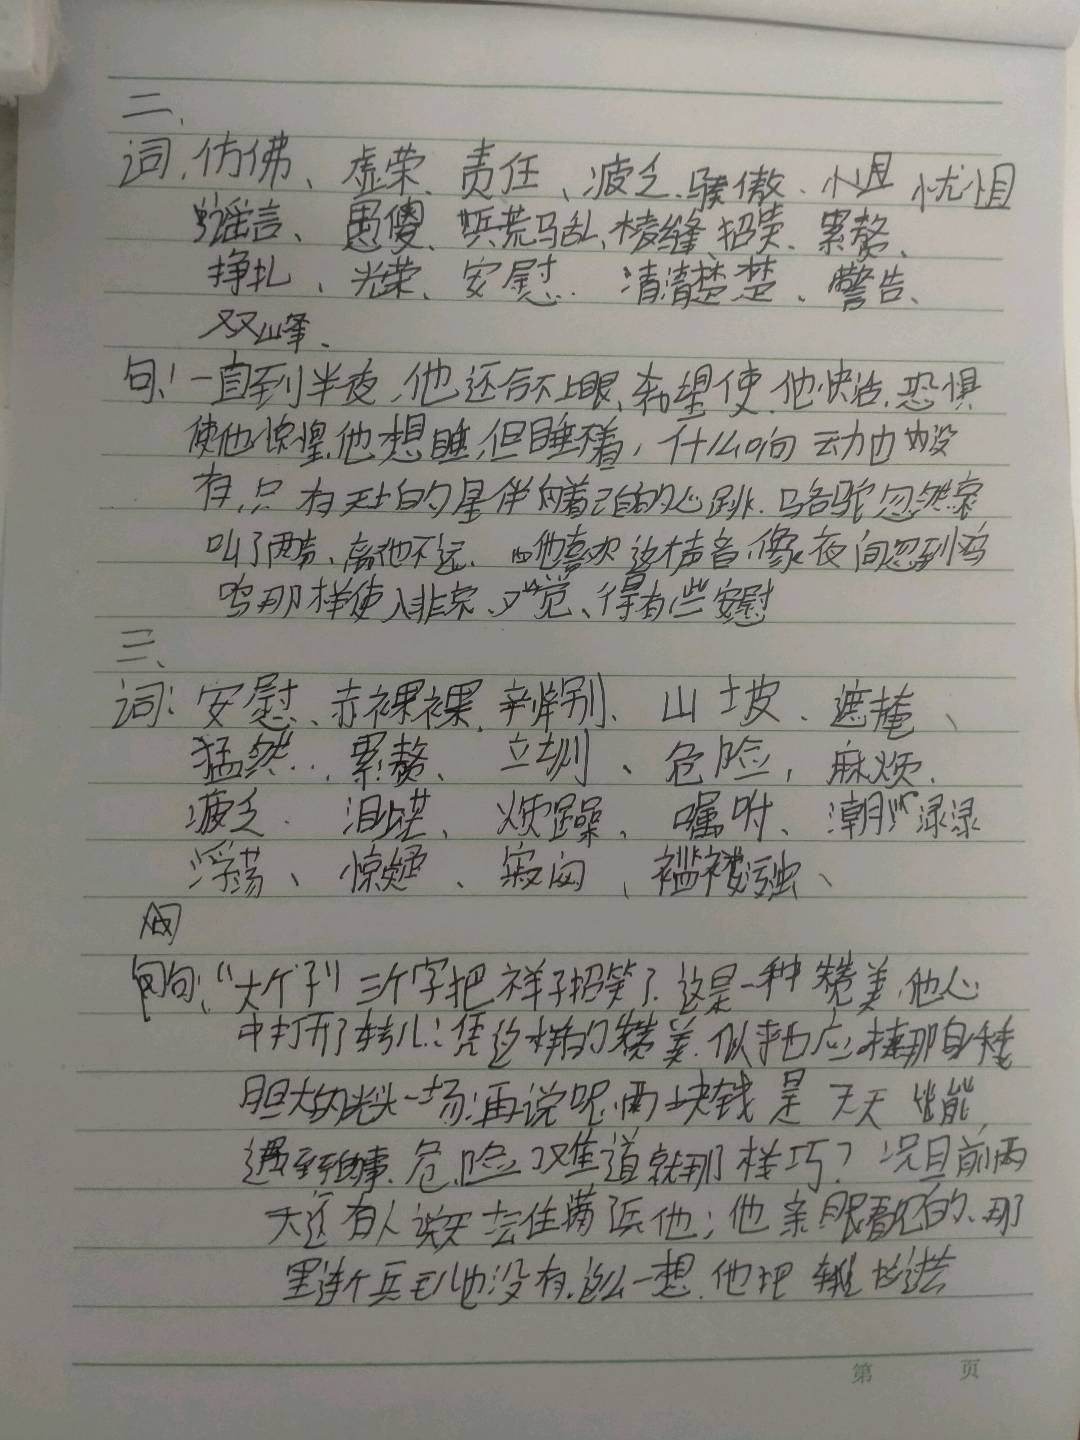 二、
词、仿佛、虚荣、责任、疲乏、骄傲、
谣言、愚傻、兵荒马乱、棱缝、招贵、累赘、
挣扎、光荣、安慰、清清楚楚、警告、
双峰、
句：一直到半夜，他还合不上眼、希望使他快活，恐惧
使他惊惶，他想睡，但睡不着，什么响动也没
有，只有天上的星伴着自己的心跳、骆驼忽然哀
叫了两声、离他不远、他喜欢这声音，像夜间忽到鸡
鸣那样使人非哀、又觉、得有些安慰
三、
词：安慰、赤裸裸、辨别、山坡、遮掩、
猛然、累赘、立圳、危险，麻烦、
疲乏、泪、烦躁、嘱咐、潮渌渌
浮荡、惊、寂、褴褛污浊、
句：“大个子”三个字把祥子招笑了，这是一种赞美，他心
中打开了转儿：凭这样的赞美、似乎也应捧那身矮
胆大的光头一场；再说呢，两块钱是天天能
遇到的事、危险？难道就那样巧？况且前两
天还有人说天坛住满了兵他；他亲眼看见的、那
里连个兵毛儿也没有，这么一想，他把车拉过去